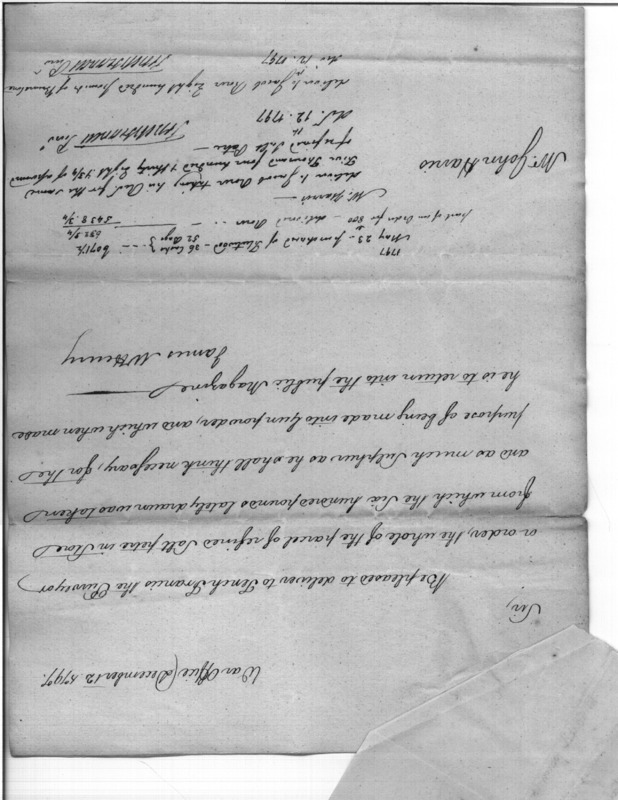 War Office December 12. 1797.
Sir,
Be pleased to deliver to Tench Francis the Purveyor
or order, the whole of the parcel of refined Salt petre in Store
from which the Six hundred pounds lately drawn was taken
and as much Sulphur as he shall think necessary, for the
purpose of being made into Gun powder, and which when made
he is to return into the public Magazine
James McHenry
1797
May 23 - purchased of
36 Casks
32 Bags
6071 1/2
part of an Order for 800 - delivered 632 3/4
5438 3/4
Mr. Harris
deliver to Jacob
Five Thousand four hundred & thirty Eight 3/4 lb of refined
Salt Petre
Dec. 12. 1797
Mr. John Harris
deliver to Jacob Eight hundred pounds of Brimstone
Dec 12. 1797